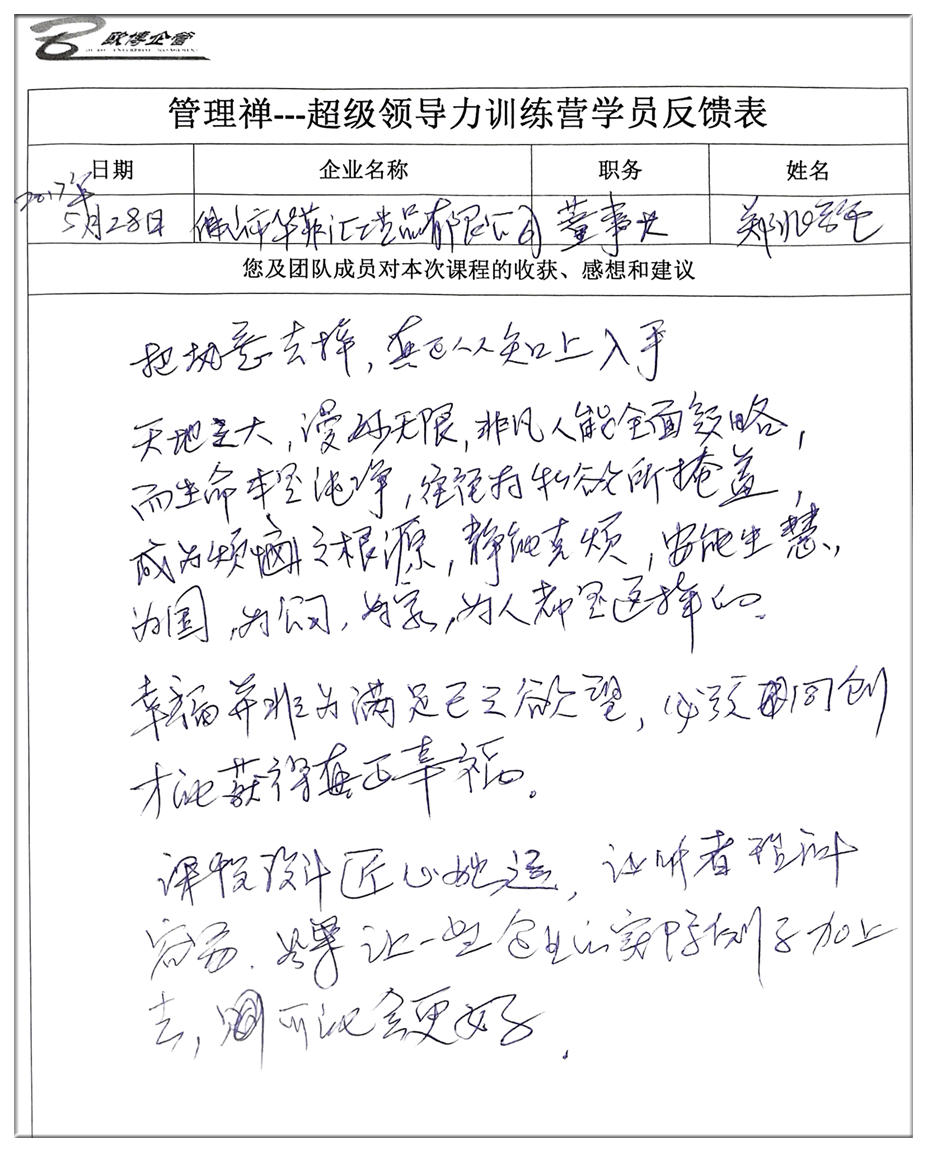 欧博企管
管理禅---超级领导力训练营学员反馈表
日期 企业名称 职务 姓名
2017年
5月28日 佛山市华菲汇洁品有限公司 董事长 郑
您及团队成员对本次课程的收获、感想和建议
把执意去掉，真正从知上入手
天地之大，漫妙无限，非凡人能全面领略，
而生命本是纯净，往往被物欲所掩盖，
成为烦恼之根源，静能克烦，安能生慧，
为国，为公司，为家，为人都是选择的。
幸福并非为满足己之欲望，必须共同创
才能获得真正幸福。
课程设计匠心独运，让听者理解
容易．如果让一些企业的实际例子加上
去，可能会更好．